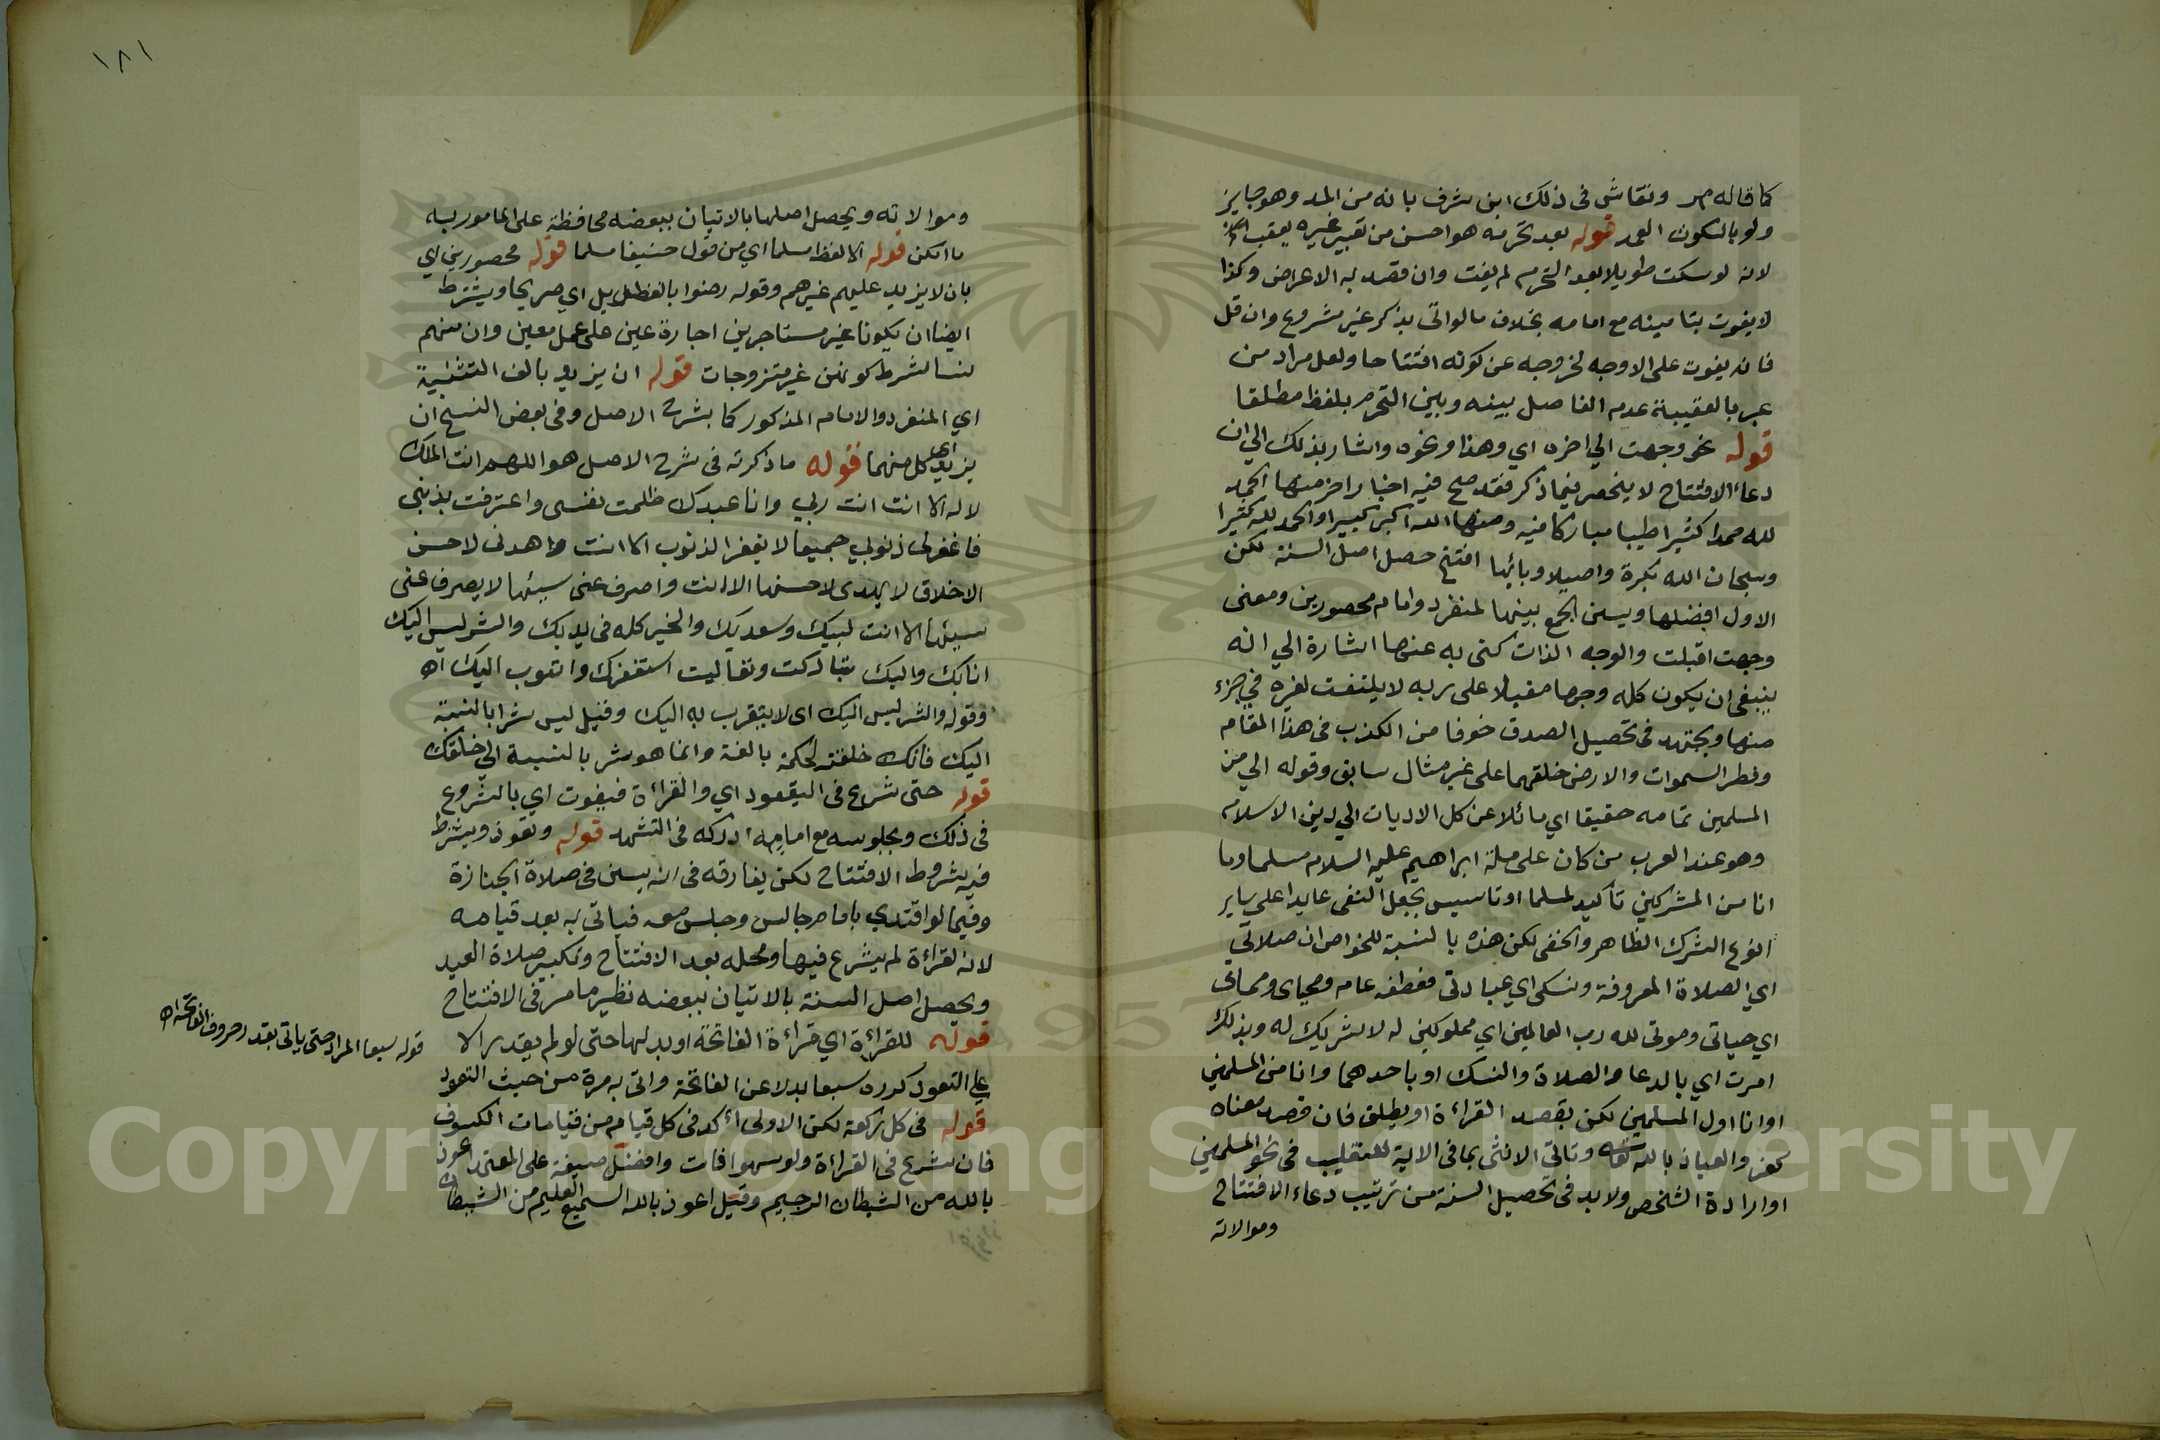 كما قاله م ر ونقاش في ذلك ابن شرف بانه من المد وهو جايز
ولو بالسكون العمد قوله بعد تحرمه هو احسن من تعبير غيره بعقب
لانه لو سكت طويلا بعد التحرم لم يفت وان قصد به الاعراض وكذا
لا يفوت بتامينه مع امامه بخلاف ما لو اتى بذكر غير مشروع وان قل
فانه يفوت على الاوجه لخروجه عن كونه افتتاحا ولعل مراد من
عبر بالعقيبية عدم الفاصل بينه وبين التحرم بلفظ مطلقا
قوله نحو وجهت الي اخره اي وهذا ونحوه واشار بذلك الي ان
دعاء الافتتاح لا ينحصر فيما ذكر فقد صح فيه اخبار اخر منها الحمد
لله حمدا كثيرا طيبا مباركا فيه ومنها الله اكبر كبيرا والحمد لله كثيرا
وسبحان الله بكرة واصيلا وبائيها افتتح حصل اصل السنة لكن
الاول افضلها ويسن الجمع بينها لمنفرد وامام محصورين ومعنى
وجهت اقبلت والوجه الذات كنى به عنها اشارة الي انه
ينبغي ان يكون كله وجها مقبلا على ربه لا يلتفت لغيره في جزء
منها ويجتهد في تحصيل الصدق خوفا من الكذب في هذا المقام
وفطر السموات والارض خلقهما على غير مثال سابق وقوله الي من
المسلمين تمامه حقيقا اي مائلا عن كل الاديات الي دين الاسلام
وهو عند العرب من كان على ملة ابراهيم عليه السلام مسلما وما
انا من المشركين تاكيد لمسلما او تاسيس بجعل النفى عايدا على ساير
انوع الشرك الظاهر والخفى لكن هذه بالنسبة للخواص ان صلاتي
اي الصلاة المعروفة ونسكى اي عبادتى فعطفه عام ومحياى ومماتى
اي حياتى وموتى لله رب العالمين اي مملوكين له لا شريك له وبذلك
امرت اي بالدعا والصلاة والنسك او باحدهما وانا من المسلمين
او وانا اول المسلمين لكن بقصد القراءة او يطلق فان قصد معناه
كفر والعياذ بالله وتاتي الانثى بما في الاية للتغليب في نحو المسلمين
او ارادة الشخص ولا بد في تحصيل السنة من ترتيب دعاء الافتتاح
وموالاته
١٨١
وموالاته ويحصل اصلها بالاتيان ببعضه محافظة على المامور به
ما امكن قوله الا لفظ مسلما اي من قول حنيفا مسلما قوله محصورين اي
بان لا يزيد عليهم غيرهم وقوله رضوا بالتطويل اي صريحا ويشترط
ايضا ان يكونا غير مستاجرين اجارة عين على عمل معين وان منهم
نسا لشرط كونهن غير متزوجات قوله ان يزيد بالف التثنية
اي المنفرد والامام المذكور كما بشرح الاصل وفى بعض النسخ ان
يزيد اى كل منهما قوله ما ذكرته في شرح الاصل هو اللهم انت الملك
لا اله الا انت انت ربي وانا عبدك ظلمت نفسى واعترفت بذنبى
فاغفر لى ذنوبي جميعا لا يغفر الذنوب الا انت واهدنى لاحسن
الاخلاق لا يهدى لاحسنها الا انت واصرف عنى سيئها لا يصرف عنى
سيئها الا انت لبيك وسعديك والخير كله فى يديك والشر ليس اليك
انا بك واليك تباركت وتعاليت استغفرك واتوب اليك اه
وقوله والشر ليس اليك اى لا يتقرب به اليك وقيل ليس شرا بالنسبة
اليك فانك خلقته لحكمة بالغة وانما هو شر بالنسبة الي خلقك
قوله حتى شرع فى التعوذ اي والقراءة فيفوت اي بالشروع
في ذلك وبجلوسه مع امامه ادركه في التشهد قوله وتعوذ ويشترط
فيه شروط الافتتاح لكن يفارقه فى انه يسن في صلاة الجنازة
وفيما لو اقتدي بامام جالس وجلس معه فياتى به بعد قيامه
لانه لقراءة لم يشرع فيها ومحله بعد الافتتاح وتكبير صلاة العيد
ويحصل اصل السنة بالاتيان ببعضه نظير ما مر في الافتتاح
قوله للقراءة اي قراءة الفاتحة او بدلها حتى لو لم يقدر الا
علي التعوذ كرره سبعا بدلا عن الفاتحة واتى به مرة من حيث التعوذ
قوله فى كل ركعة لكن الاولى اكد فى كل قيام من قيامات الكسوف
فان شرع فى القراءة ولو سهوا فات وافضل صيغة على المعتمد اعوذ
بالله من الشيطان الرجيم وقيل اعوذ بالله السميع العليم من الشيطان
قوله سبعا المراد حتى ياتى بقدر حروف الفاتحة اه